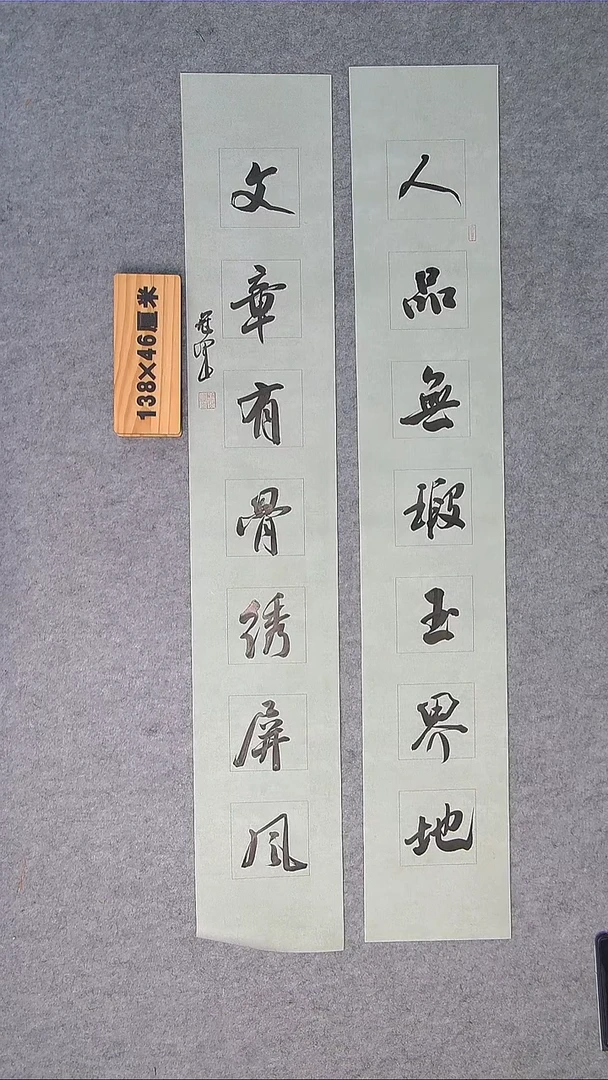 人品無瑕玉界地
文章有骨绣屏风
138×46厘米